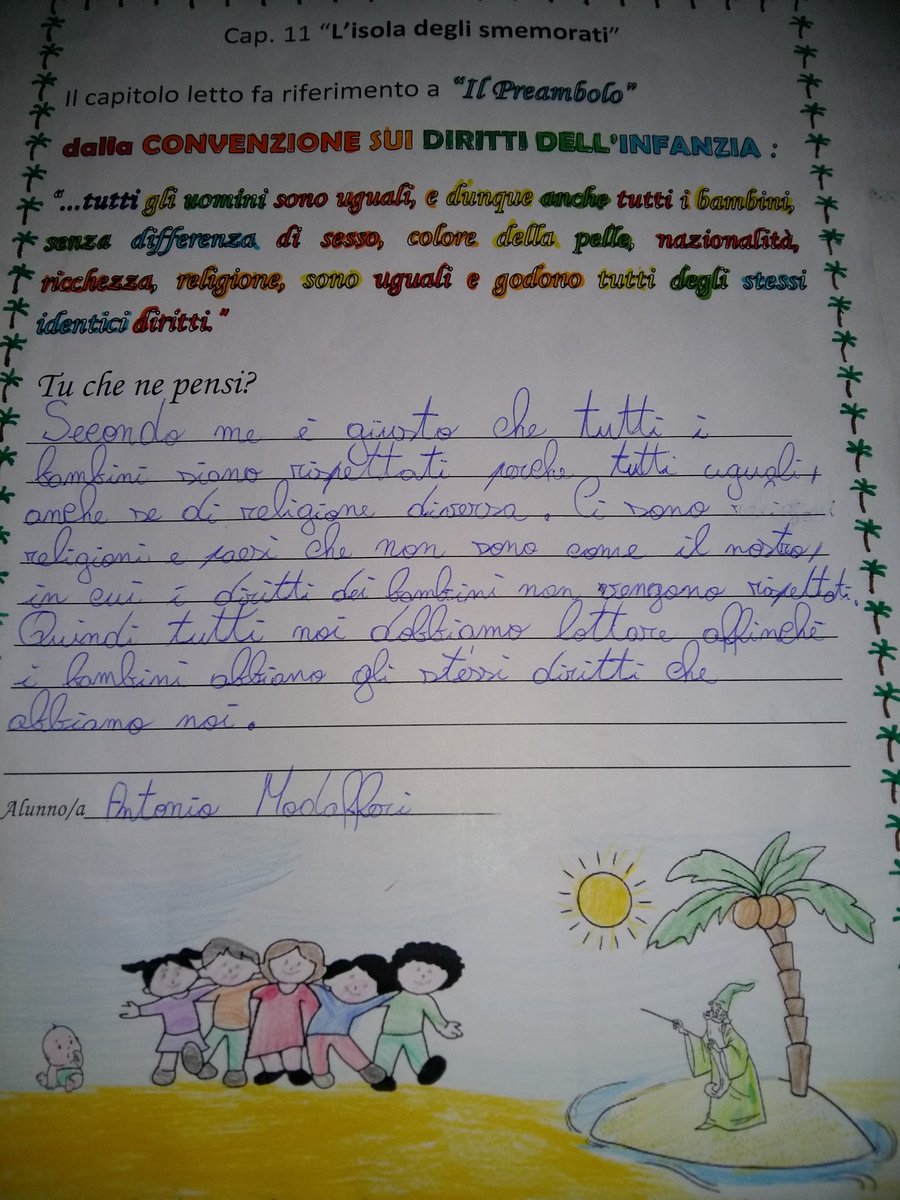 Cap. 11 “L’isola degli smemorati”
Il capitolo letto fa riferimento a “Il Preambolo”
dalla CONVENZIONE SUI DIRITTI DELL’INFANZIA :
“...tutti gli uomini sono uguali, e dunque anche tutti i bambini,
senza differenza di sesso, colore della pelle, nazionalità,
ricchezza, religione, sono uguali e godono tutti degli stessi
identici diritti.”
Tu che ne pensi?
Secondo me è giusto che tutti i
bambini siano rispettati perche tutti uguali,
anche se di religione diversa. Ci sono
religioni e paesi che non sono come il nostro,
in cui i diritti dei bambini non vengono rispettati.
Quindi tutti noi dobbiamo lottare affinchè
i bambini abbiano gli stessi diritti che
abbiamo noi.
Alunno/a Antonio Modafferi